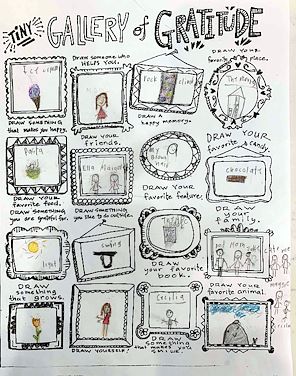 TINY GALLERY of GRATITUDE
DRAW SOMETHING that makes you happy.
DRAW someone who HELPS YOU.
DRAW A happy memory.
DRAW YOUR favorite place.
Rock
DRAW YOUR favorite food.
Pasta
DRAW YOUR friends.
Ella
DRAW YOUR favorite feature.
My brown hair
DRAW YOUR favorite candy.
chocolate
DRAW SOMETHING YOU ARE GRATEFUL FOR.
light
DRAW SOMETHING you like to do outside.
swing
DRAW your favorite book.
DRAW your FAMILY.
Mom
DRAW something that grows.
DRAW YOURSELF!
DRAW something that makes you SMILE.
Cecilia
DRAW YOUR favorite animal.